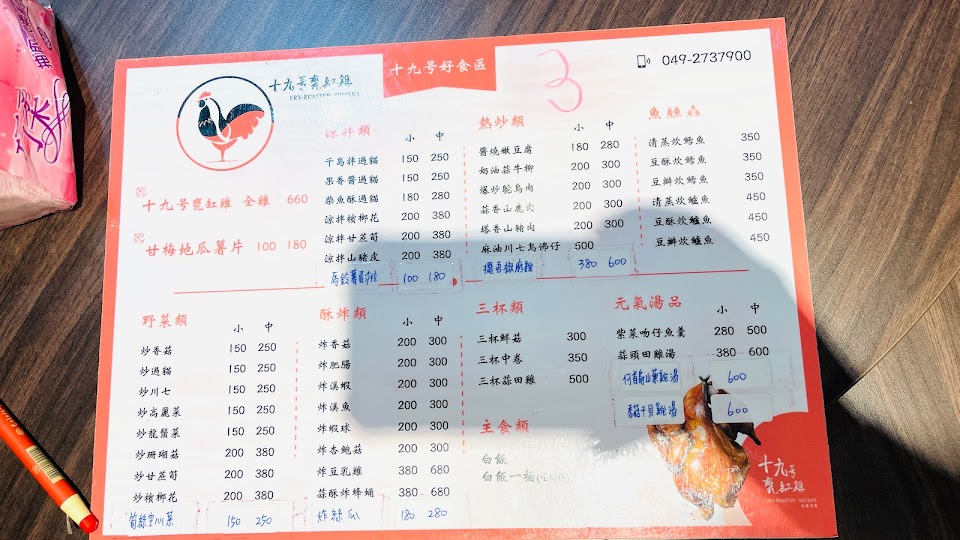 十九号好食區
049-2737900
3
十九号甕缸雞
URN-ROASTED CHICKEN
十九号甕缸雞 全雞 660
甘梅地瓜薯片 100 180
涼拌類 小 中
千島拌過貓 150 250
果香醬過貓 150 250
柴魚酥過貓 180 280
涼拌檳榔花 200 380
涼拌甘蔗筍 200 380
涼拌山豬皮 200 380
100 180
熱炒類 小 中
醬燒嫩豆腐 180 280
奶油蒜牛柳 200 300
爆炒鴕鳥肉 200 300
蒜香山鹿肉 200 300
塔香山豬肉 200 300
麻油川七烏佛仔 500
380 600
魚蝦類
清蒸炊鱈魚 350
豆酥炊鱈魚 350
豆瓣炊鱈魚 350
清蒸炊鱸魚 450
豆酥炊鱸魚 450
豆瓣炊鱸魚 450
野菜類 小 中
炒香菇 150 250
炒過貓 150 250
炒川七 150 250
炒高麗菜 150 250
炒龍鬚菜 150 250
炒珊瑚菇 200 380
炒甘蔗筍 200 380
炒檳榔花 200 380
筍絲空心菜 150 250
酥炸類 小 中
炸香菇 200 300
炸肥腸 200 300
炸溪蝦 200 300
炸溪魚 200 300
炸蝦球 200 300
炸杏鮑菇 200 300
炸豆乳雞 380 680
蒜酥炸蜂蛹 380 680
炸絲瓜 180 280
三杯類
三杯鮮菇 300
三杯中卷 350
三杯蒜田雞 500
主食類
白飯
白飯一桶
元氣湯品 小 中
紫菜吻仔魚羹 280 500
蒜頭田雞湯 380 600
何首烏山藥雞湯 600
香菇干貝雞湯 600
十九号
甕缸雞
URN-ROASTED CHICKEN